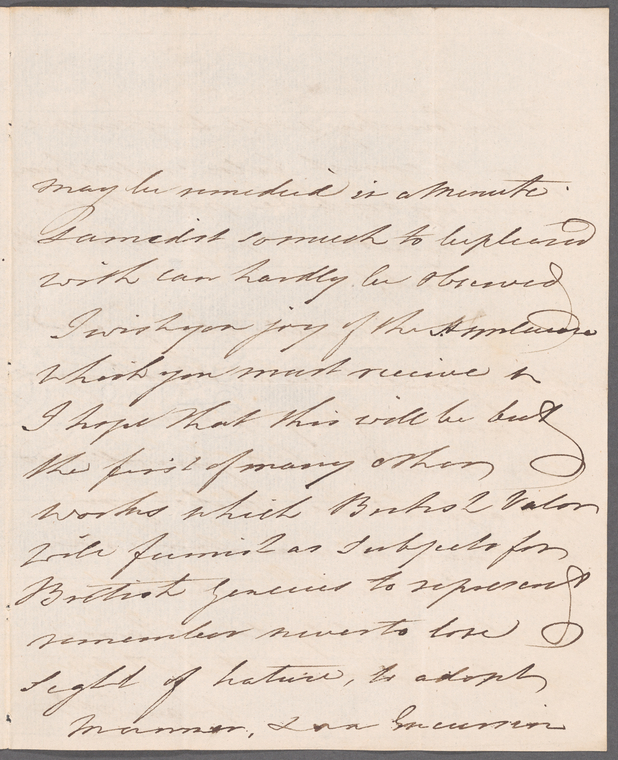 may be remedied in a Minute
& amidst so much to be pleased
with can hardly be observed
I wish you joy of the Applause
which you must receive &
I hope that this will be but
the first of many other
works which British Valor
will furnish as subjects for
British Genius to represent
remember never to lose
sight of Nature, to adopt
Manner, & an Excursion